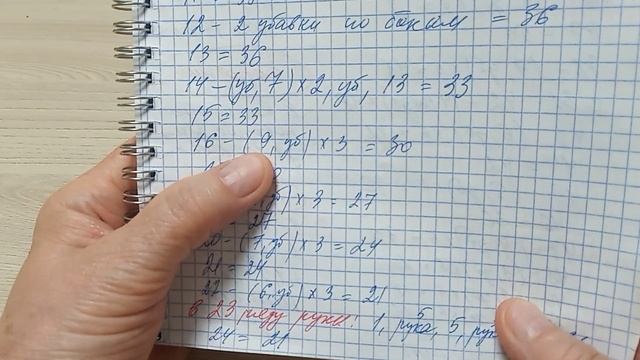 12 - 2 убавки по бокам = 36
13 = 36
14 - (уб, 7) × 2, уб, 13 = 33
15 = 33
16 - (9, уб) × 3 = 30
уб) × 3 = 27
27
20 - (7, уб) × 3 = 24
21 = 24
22 - (6, уб) × 3 = 21
в 23 ряду руки: 1, рука, 5, рук
24 = 21